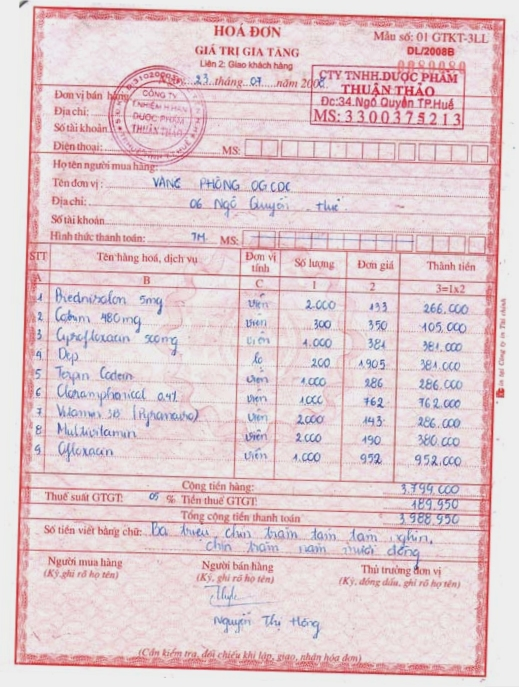 HOÁ ĐƠN
GIÁ TRỊ GIA TĂNG
Liên 2: Giao khách hàng
Mẫu số: 01 GTKT-3LL
DL/2008B
0080080
Ngày: 23 tháng 07 năm 2008
CTY TNHH.DƯỢC PHẨM
THUẬN THẢO
Đc:34.Ngô Quyền TP.Huế
MS:3300375213
CÔNG TY
TNHIỆM H HẠN
DƯỢC PHẨM
THUẬN THẢO
Đơn vị bán hàng
Địa chỉ:
Số tài khoản
Điện thoại: MS:
Họ tên người mua hàng:
Tên đơn vị: VĂNG PHÒNG OGCDC
Địa chỉ: 06 Ngô Quyền. Huế.
Số tài khoản
Hình thức thanh toán: TM. MS:
STT Tên hàng hoá, dịch vụ Đơn vị tính Số lượng Đơn giá Thành tiền
A B C 1 2 3=1x2
1 Prednisolon 5mg viên 2.000 133 266.000
2 480mg viên 300 350 105.000
3 Ciprofloxacin 500mg viên 1.000 381 381.000
4 Dep lọ 200 1905 381.000
5 Terpin Codein viên 1.000 286 286.000
6 0.4% viên 1.000 762 762.000
7 Vitamin 3B viên 2.000 143 286.000
8 Multivitamin viên 2.000 190 380.000
9 Ofloxacin viên 1.000 952 952.000
Cộng tiền hàng: 3.799.000
Thuế suất GTGT: 05 % Tiền thuế GTGT: 189.950
Tổng cộng tiền thanh toán 3.988.950
Số tiền viết bằng chữ: Ba triệu, chín trăm tám tám nghìn,
chín trăm năm mươi đồng
Người mua hàng Người bán hàng Thủ trưởng đơn vị
(Ký, ghi rõ họ tên) (Ký, ghi rõ họ tên) (Ký, đóng dấu, ghi rõ họ tên)
Nguyễn Thị Hồng
(Cần kiểm tra, đối chiếu khi lập, giao, nhận hóa đơn)